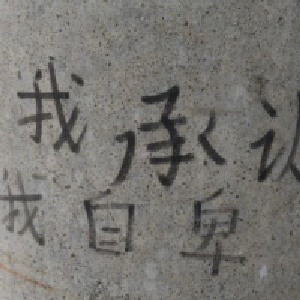 我承认
我自卑